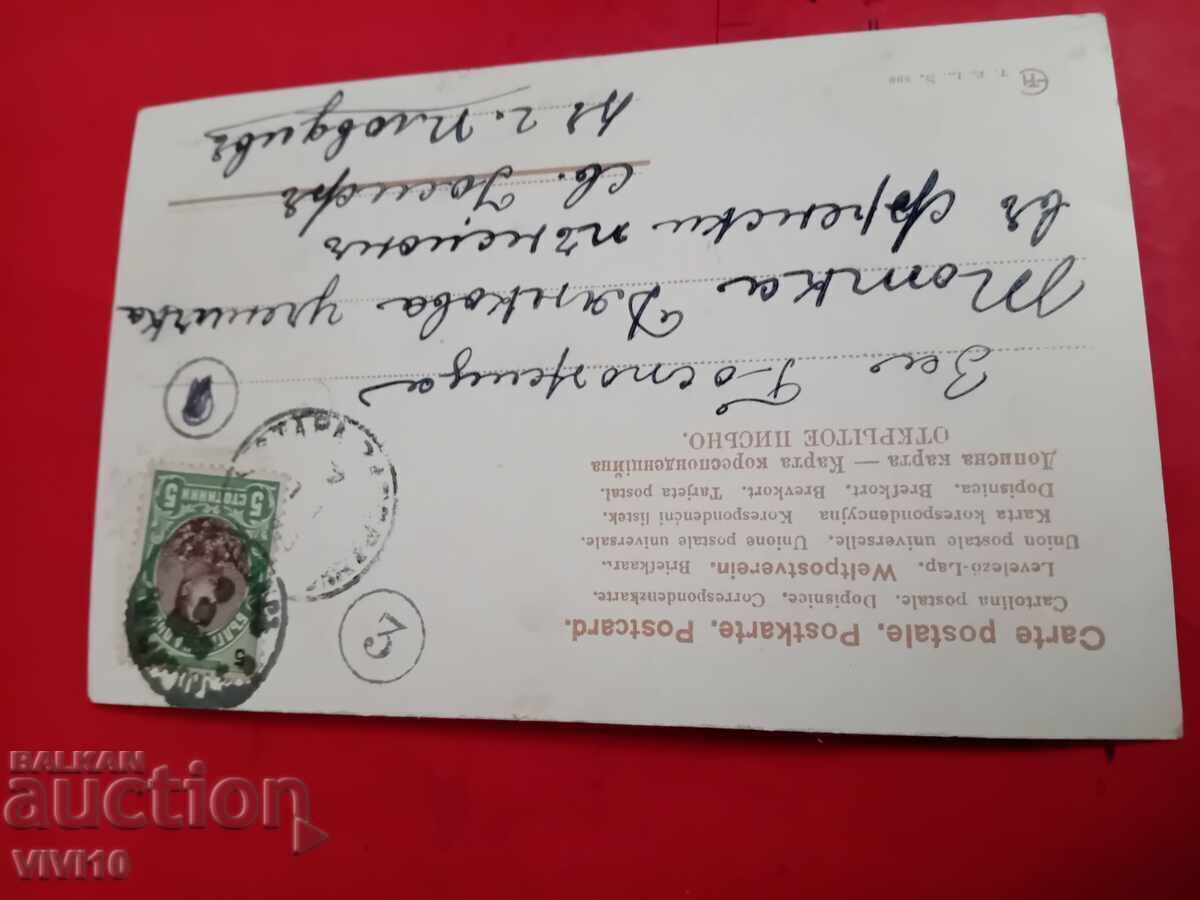 Carte postale. Postkarte. Postcard.
Cartolina postale. Dopisnice. Correspondenzkarte.
Levelezö-Lap. Weltpostverein. Briefkaart.
Union postale universelle. Unione postale universale.
Karta korespondencyjna Korespondenční listek.
Dopisnica. Brefkort. Brevkort. Tarjeta postal.
Дописна карта — Карта кореспонденційна
ОТКРЫТОЕ ПИСЬМО.
5
СТАРА ЗА
5
5 СТОТИНКИ
За Госпожица
Тотка Дянкова ученичка
въ френски пансионъ
св. Йосифъ
гр. Пловдивъ
T. E. L. N. 800
BALKAN
auction
VIVI10